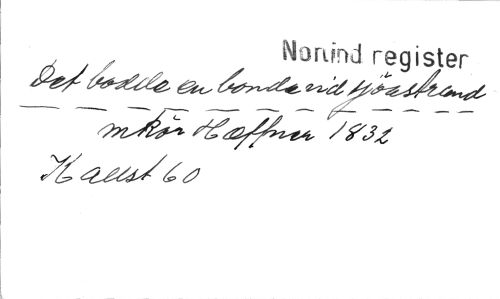 Norlind register
Det bodde en bonde vid sjöastrand
mkör Hæffner 1832
K allst 60